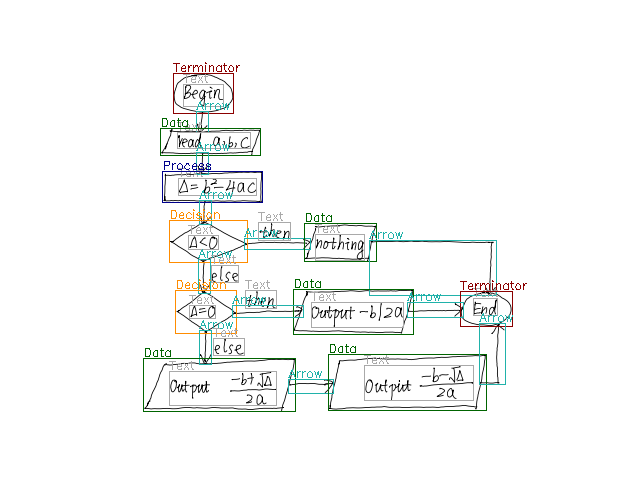 Terminator
Text
Begin
Arrow
Data
Text
read a,b,c
Arrow
Process
Text
Δ=b²-4ac
Arrow
Decision
Text
Δ<0
Arrow
Text
then
Data
Text
nothing
Arrow
Arrow
Text
else
Decision
Text
Δ=0
Arrow
Text
then
Data
Text
Output -b/2a
Arrow
Terminator
Text
End
Arrow
Arrow
Text
else
Data
Text
Output (-b+√Δ)/2a
Arrow
Data
Text
Output (-b-√Δ)/2a